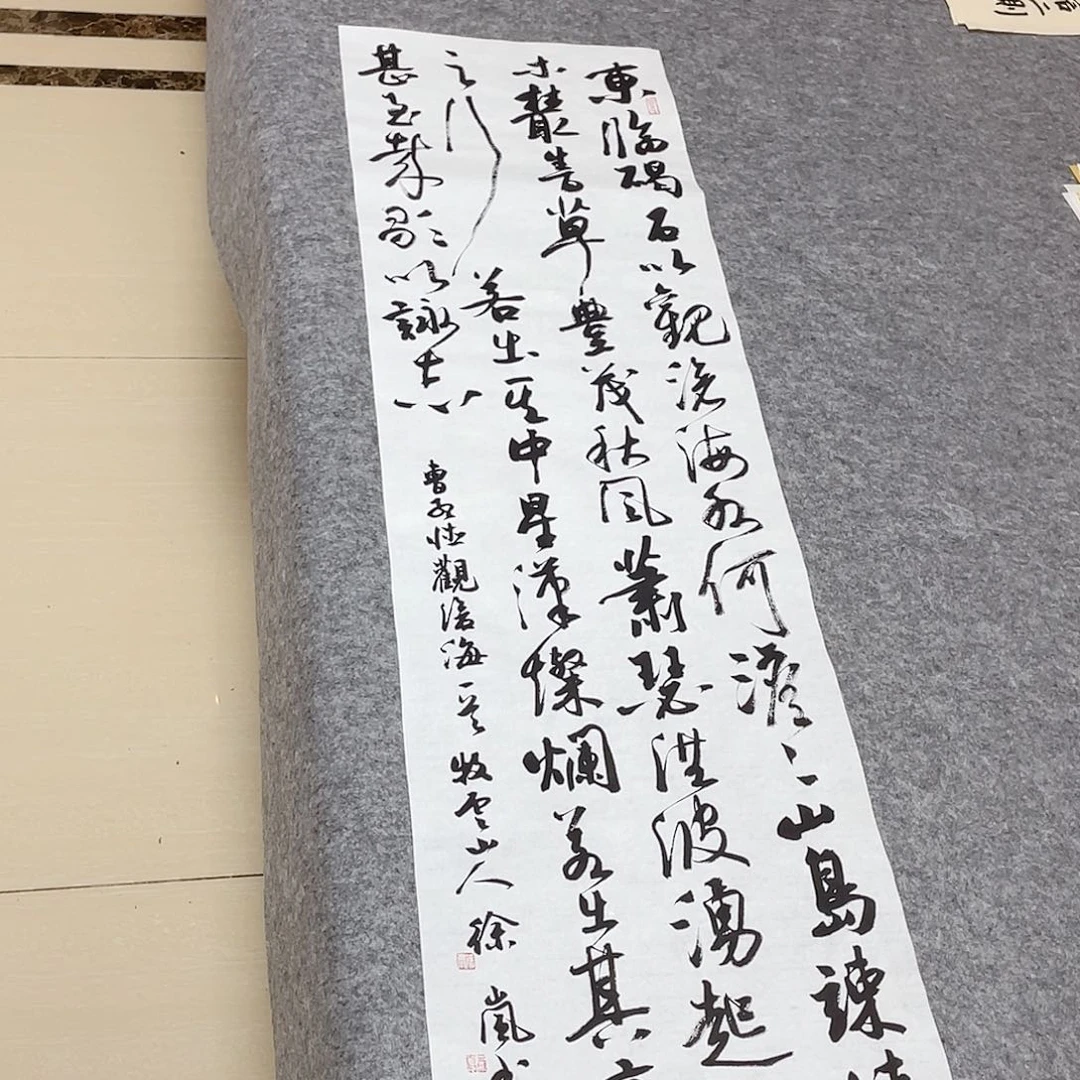 東臨碣石以觀滄海水何澹〻山島竦
木叢生百草豐茂秋風蕭瑟洪波湧起
之行若出其中星漢燦爛若出其
甚至哉歌以詠志 曹孟德觀滄海一首 牧雲山人徐嵐